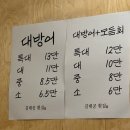 대방어
특대 13만
대 11만
중 8.5만
소 6.5만
대방어+모듬회
특대 12만
대 10만
중 8만
소 6만